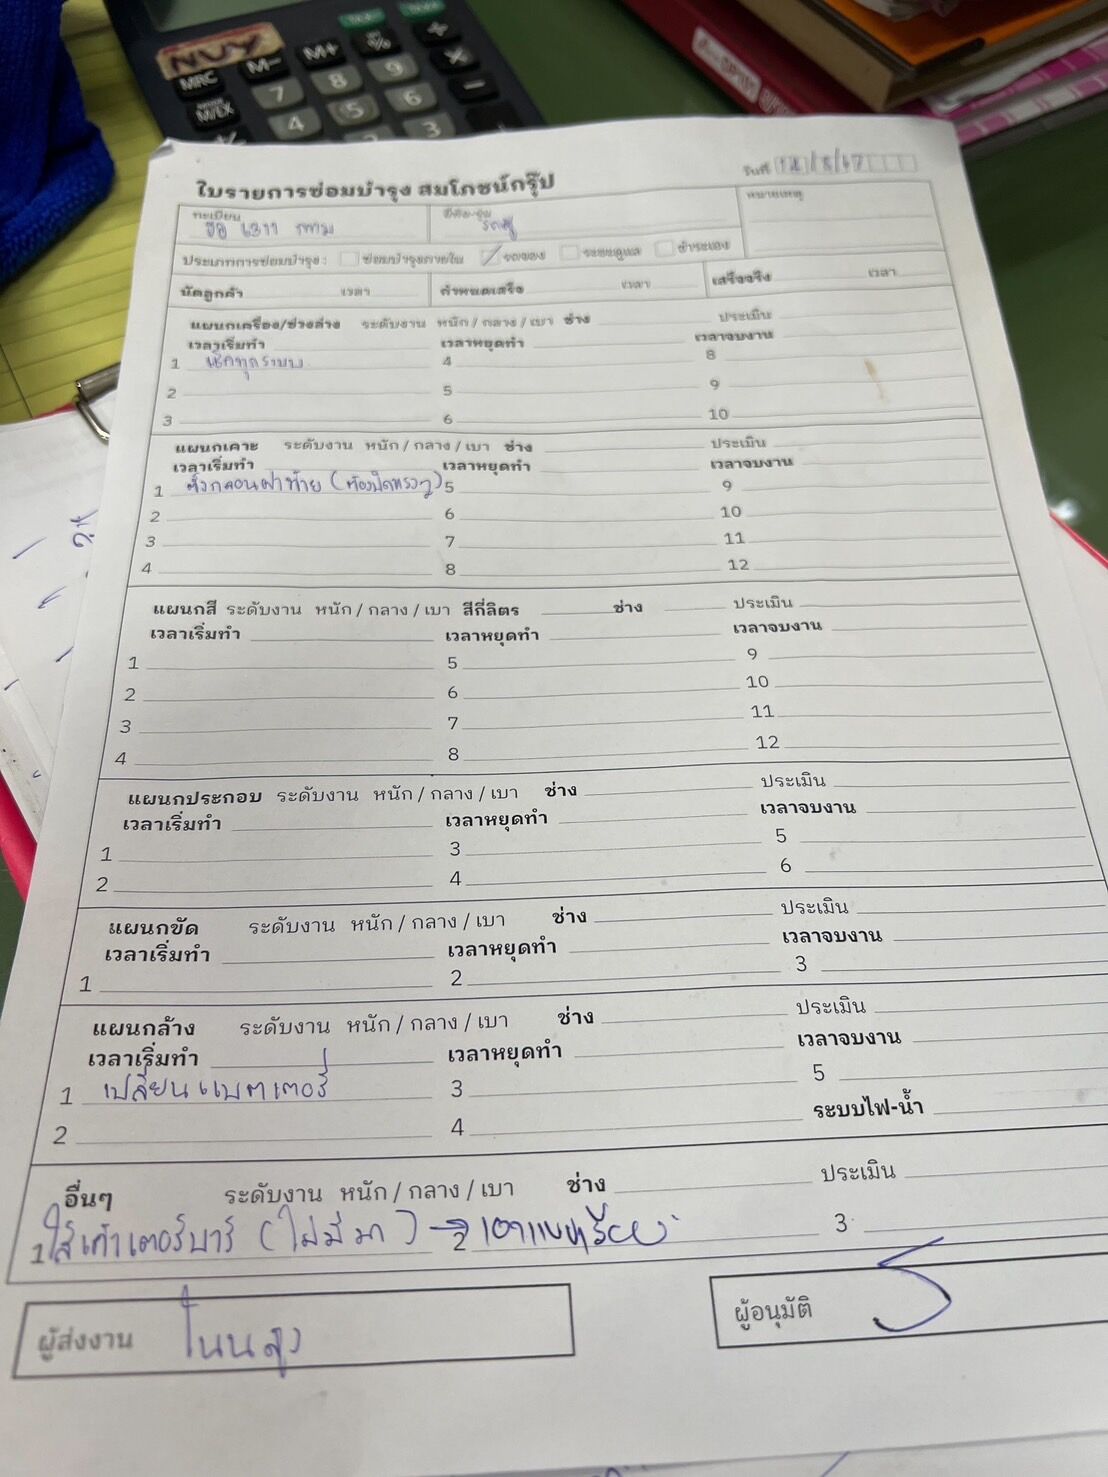 NUY
MRC M- M+ %
7 8 9
4 5 6
3
ใบรายการซ่อมบำรุง สมโภชน์กรุ๊ป
วันที่
ทะเบียน ยี่ห้อ-รุ่น หมายเหตุ
6311 กทม
ประเภทการซ่อมบำรุง : ซ่อมบำรุงภายใน รถจอง ระยะดูแล ชำระเอง
นัดลูกค้า เวลา กำหนดเสร็จ เวลา เสร็จจริง เวลา
แผนกเครื่อง/ช่วงล่าง ระดับงาน หนัก / กลาง / เบา ช่าง ประเมิน
เวลาเริ่มทำ เวลาหยุดทำ เวลาจบงาน
1 เช็คทุกระบบ 4 8
2 5 9
3 6 10
แผนกเคาะ ระดับงาน หนัก / กลาง / เบา ช่าง ประเมิน
เวลาเริ่มทำ เวลาหยุดทำ เวลาจบงาน
1 ตั้งกลอนฝาท้าย (ต้องปิดแรงๆ) 5 9
2 6 10
3 7 11
4 8 12
แผนกสี ระดับงาน หนัก / กลาง / เบา สีกี่ลิตร ช่าง ประเมิน
เวลาเริ่มทำ เวลาหยุดทำ เวลาจบงาน
1 5 9
2 6 10
3 7 11
4 8 12
แผนกประกอบ ระดับงาน หนัก / กลาง / เบา ช่าง ประเมิน
เวลาเริ่มทำ เวลาหยุดทำ เวลาจบงาน
1 3 5
2 4 6
แผนกขัด ระดับงาน หนัก / กลาง / เบา ช่าง ประเมิน
เวลาเริ่มทำ เวลาหยุดทำ เวลาจบงาน
1 2 3
แผนกล้าง ระดับงาน หนัก / กลาง / เบา ช่าง ประเมิน
เวลาเริ่มทำ เวลาหยุดทำ เวลาจบงาน
1 เปลี่ยนแบตเตอรี่ 3 5
2 4 ระบบไฟ-น้ำ
อื่นๆ ระดับงาน หนัก / กลาง / เบา ช่าง ประเมิน
1 ใส่เค้าเตอร์บาร์ (ไม่มีมา) → 2 3
ผู้ส่งงาน โนนสูง ผู้อนุมัติ